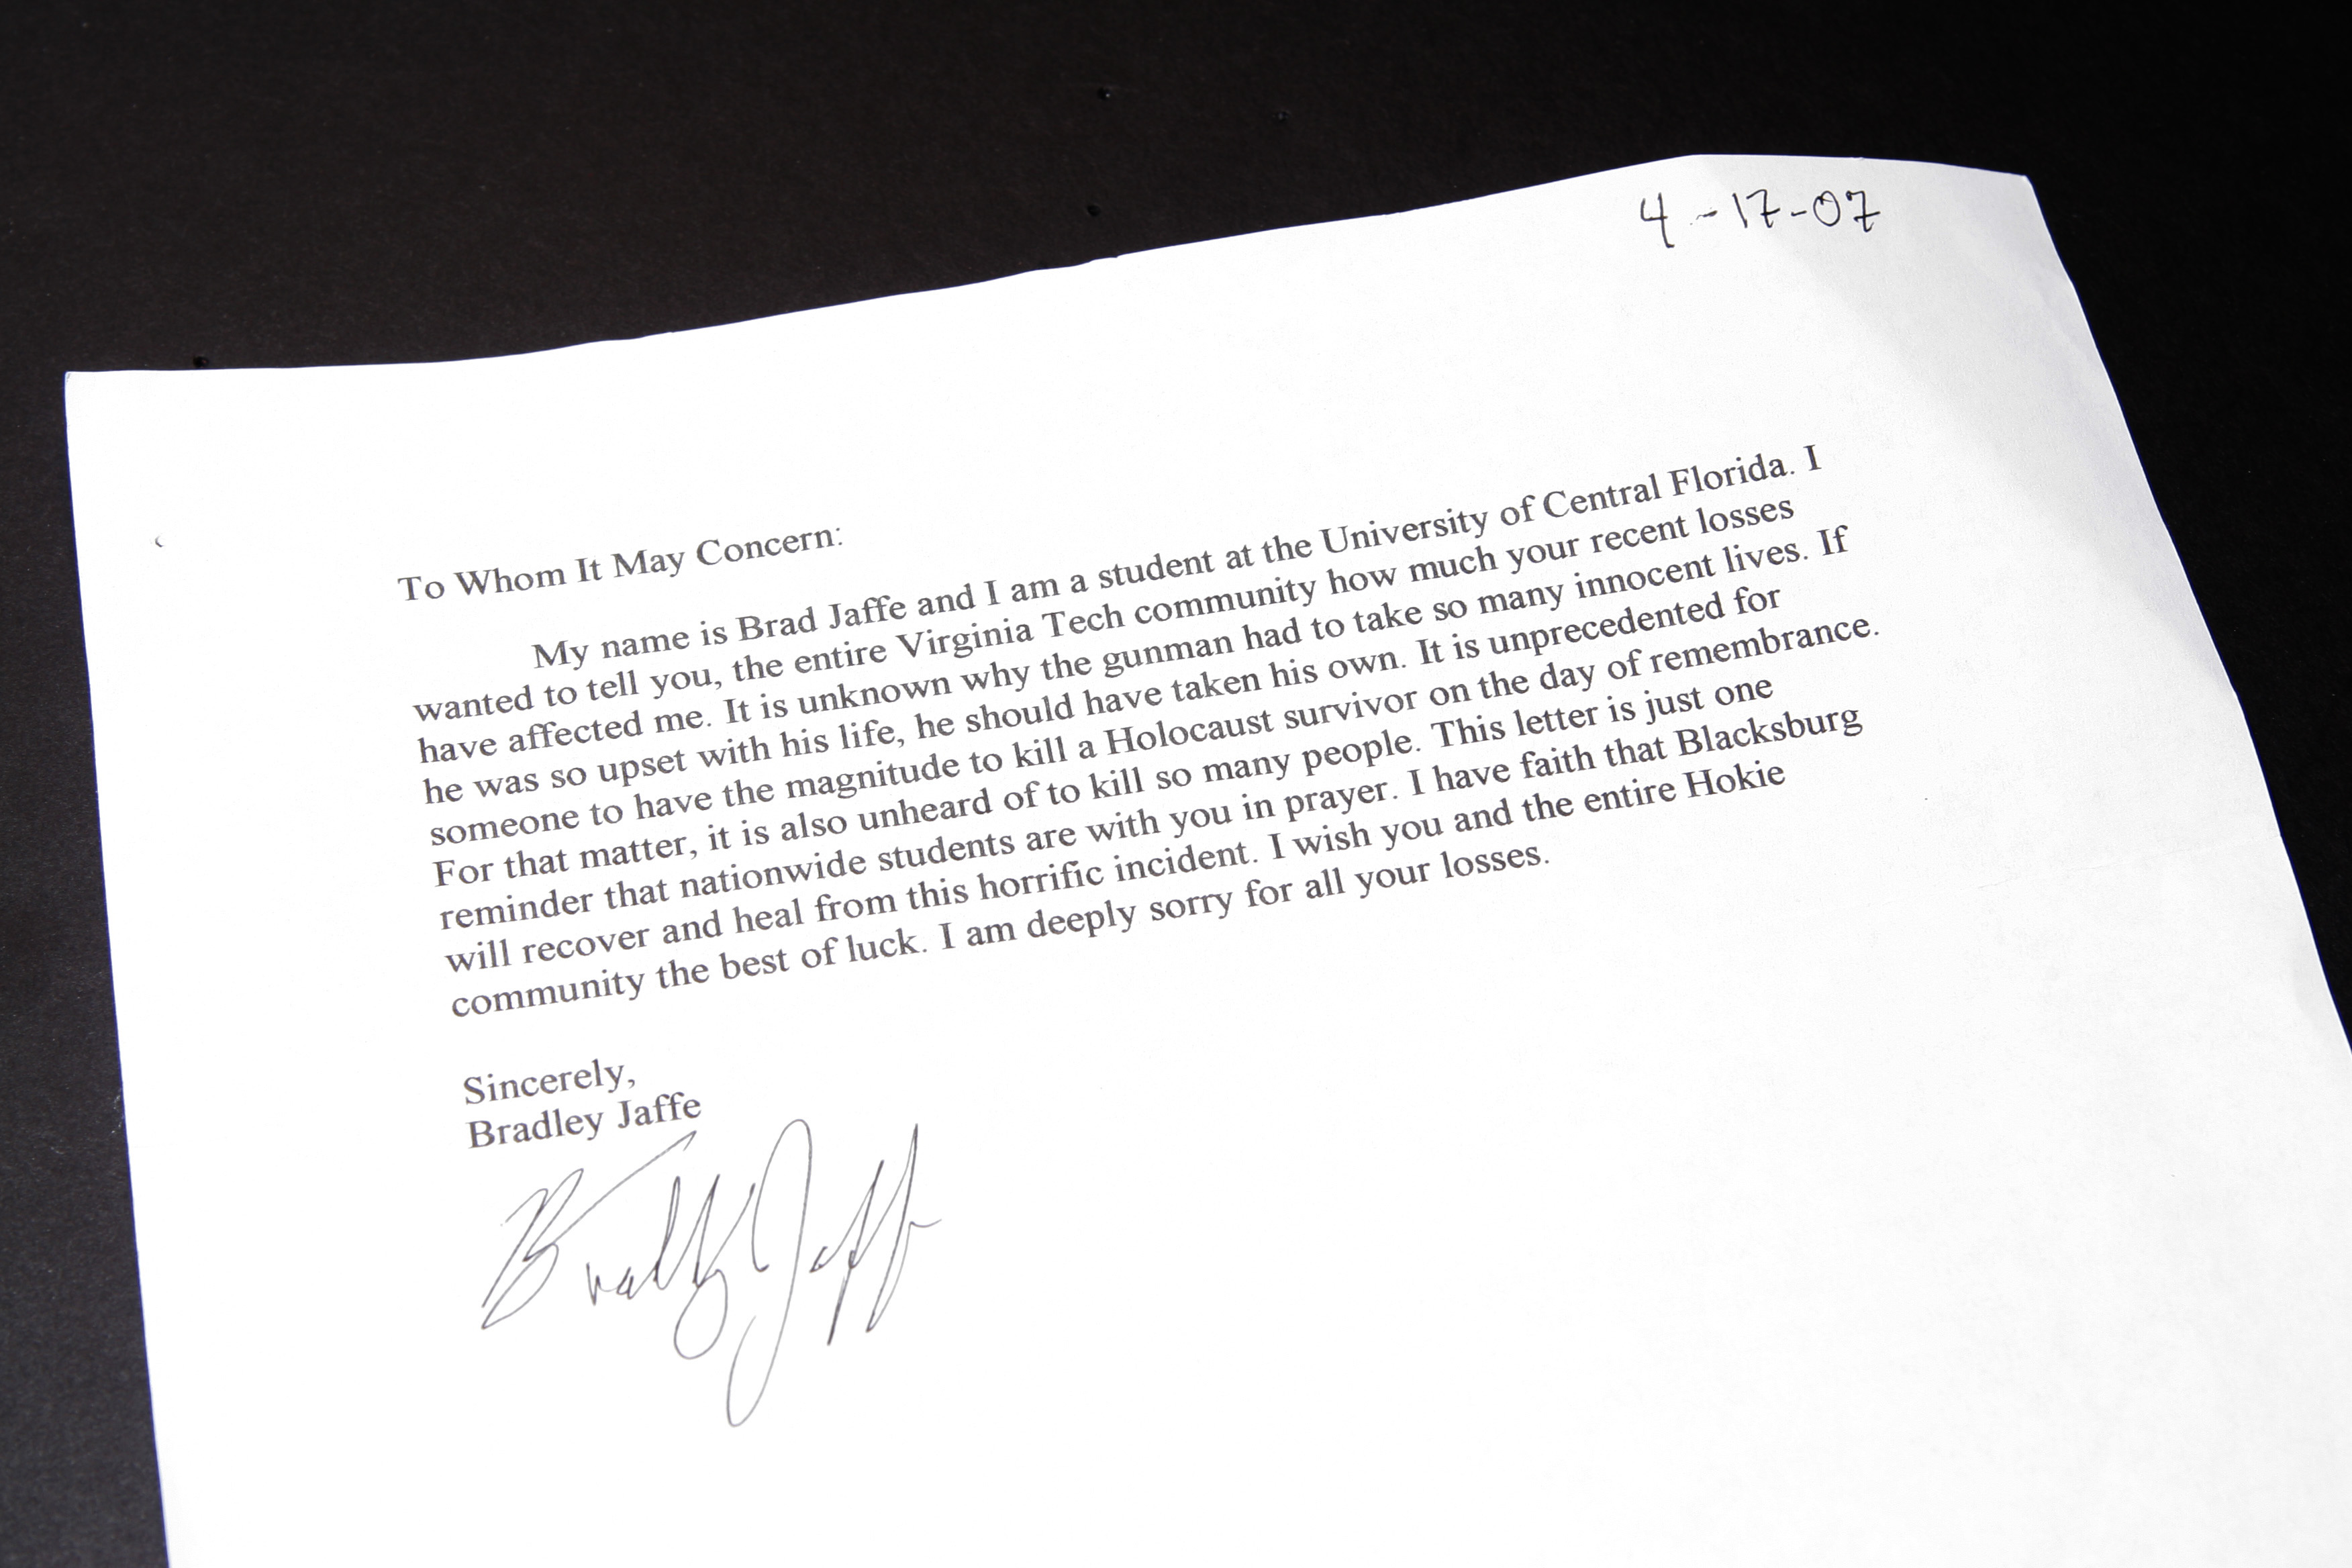 4-17-07
To Whom It May Concern:
My name is Brad Jaffe and I am a student at the University of Central Florida. I
wanted to tell you, the entire Virginia Tech community how much your recent losses
have affected me. It is unknown why the gunman had to take so many innocent lives. If
he was so upset with his life, he should have taken his own. It is unprecedented for
someone to have the magnitude to kill a Holocaust survivor on the day of remembrance.
For that matter, it is also unheard of to kill so many people. This letter is just one
reminder that nationwide students are with you in prayer. I have faith that Blacksburg
will recover and heal from this horrific incident. I wish you and the entire Hokie
community the best of luck. I am deeply sorry for all your losses.
Sincerely,
Bradley Jaffe
Bradley Jaffe